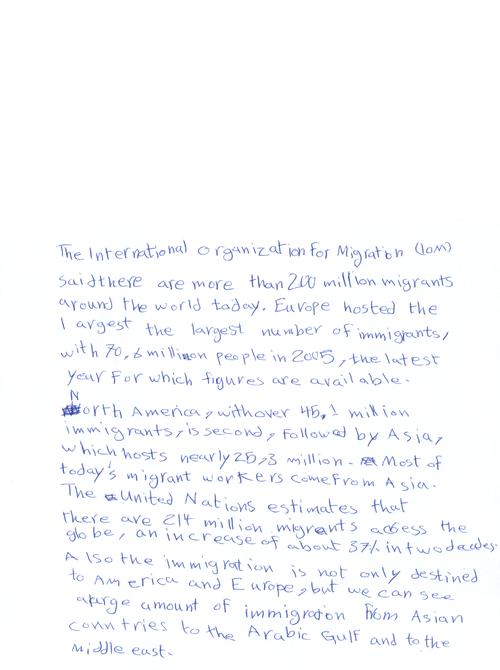 The International Organization for Migration (IOM)
said there are more than 200 million migrants
around the world today. Europe hosted the
largest the largest number of immigrants,
with 70,6 million people in 2005, the latest
year for which figures are available.
North America, with over 45,1 million
immigrants, is second, followed by Asia,
which hosts nearly 25,3 million. Most of
today's migrant workers come from Asia.
The United Nations estimates that
there are 214 million migrants across the
globe, an increase of about 37% in two decades.
Also the immigration is not only destined
to America and Europe, but we can see
a large amount of immigration from Asian
countries to the Arabic Gulf and to the
middle east.